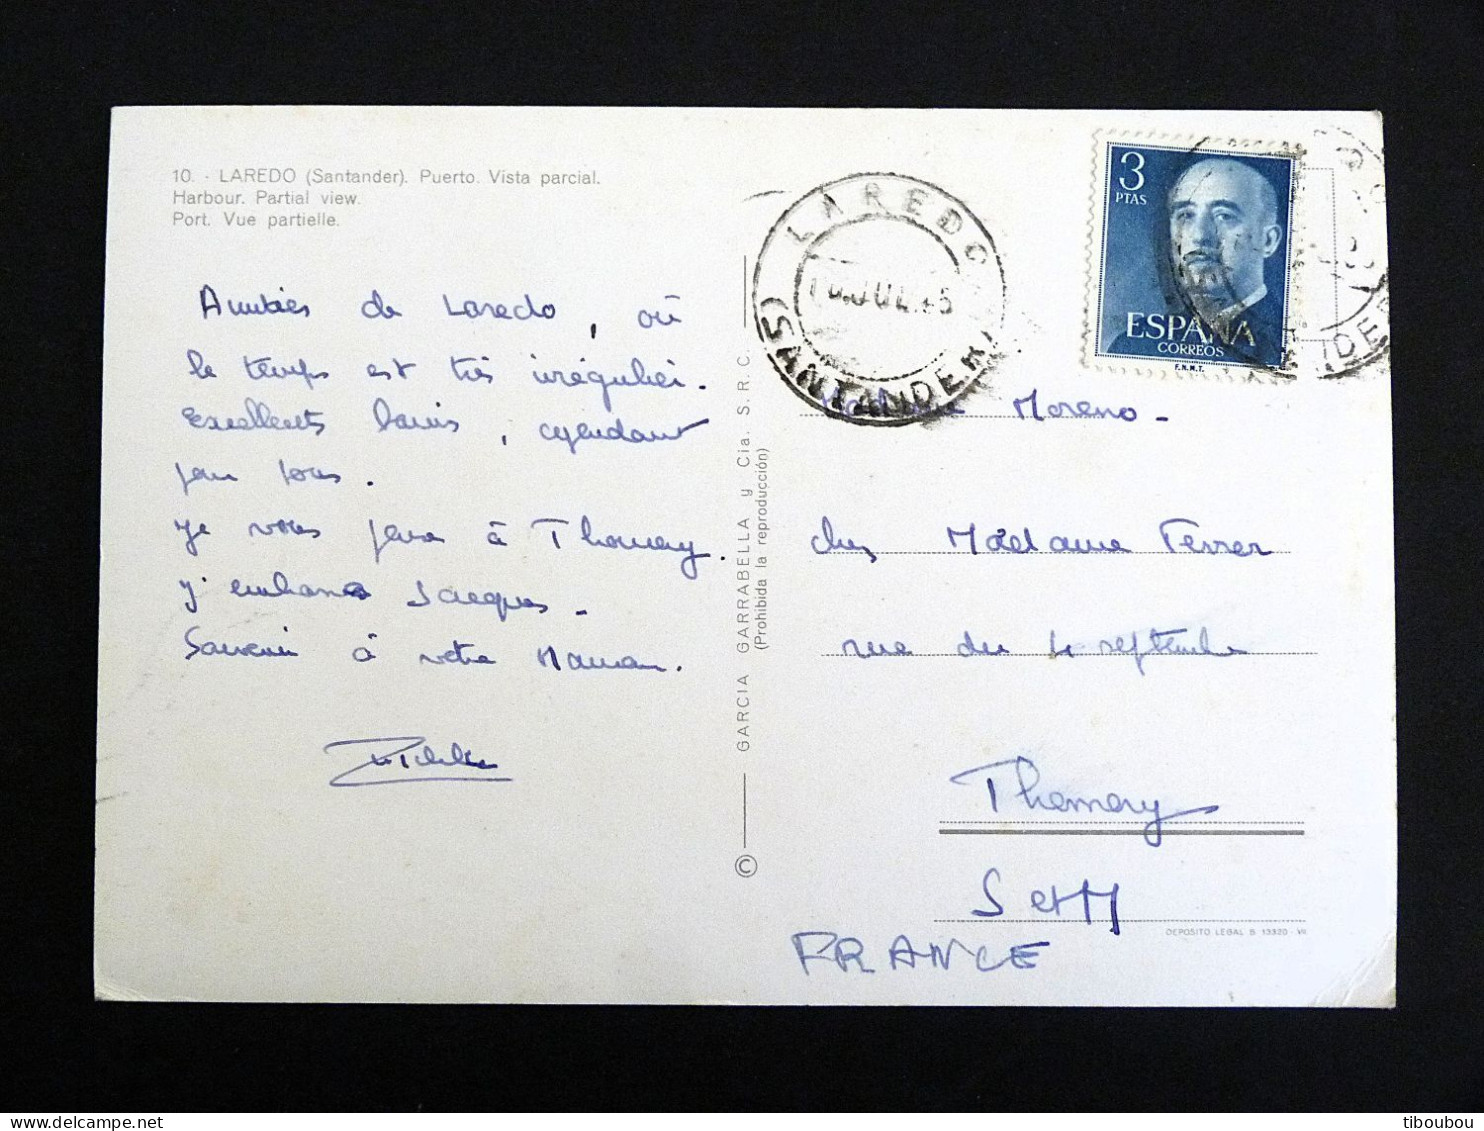 10. - LAREDO (Santander). Puerto. Vista parcial.
Harbour. Partial view.
Port. Vue partielle.
Amitiés de Laredo, où
le temps est très irrégulier.
Excellents bains, cependant
pour tous.
Je vous pense à Thomery.
J'embrasse Jacques -
Souvenir à votre Maman.
GARCIA GARRABELLA y Cia. S.R.C.
(Prohibida la reproducción)
©
LAREDO
JUL.
(SANTANDER)
3
PTAS
ESPAÑA
CORREOS
F.N.M.T.
Madame Moreno -
chez Madame Ferrer
rue du 4 septembre
Thomery
S et M
FRANCE
DEPOSITO LEGAL B. 13320 - VII
tiboubou